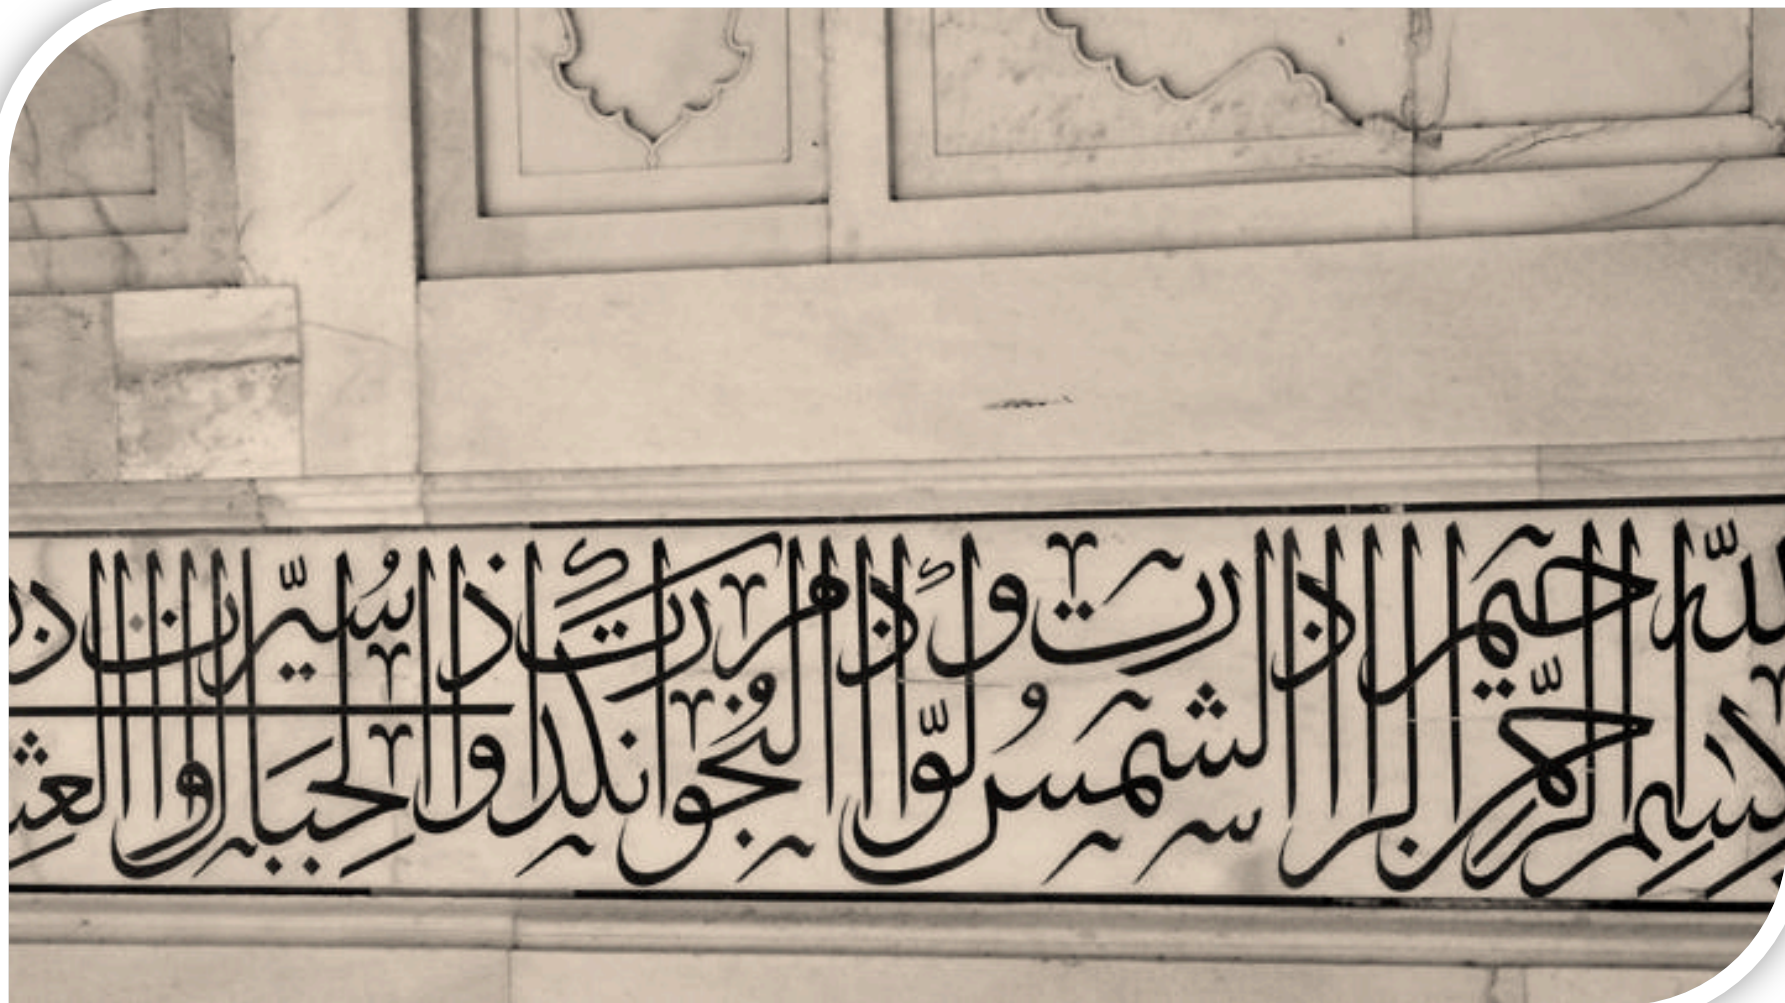 بِسْمِ اللّٰهِ الرَّحْمٰنِ الرَّحِيمِ إِذَا الشَّمْسُ كُوِّرَتْ وَإِذَا النُّجُومُ انكَدَرَتْ وَإِذَا الْجِبَالُ سُيِّرَتْ وَإِذَا